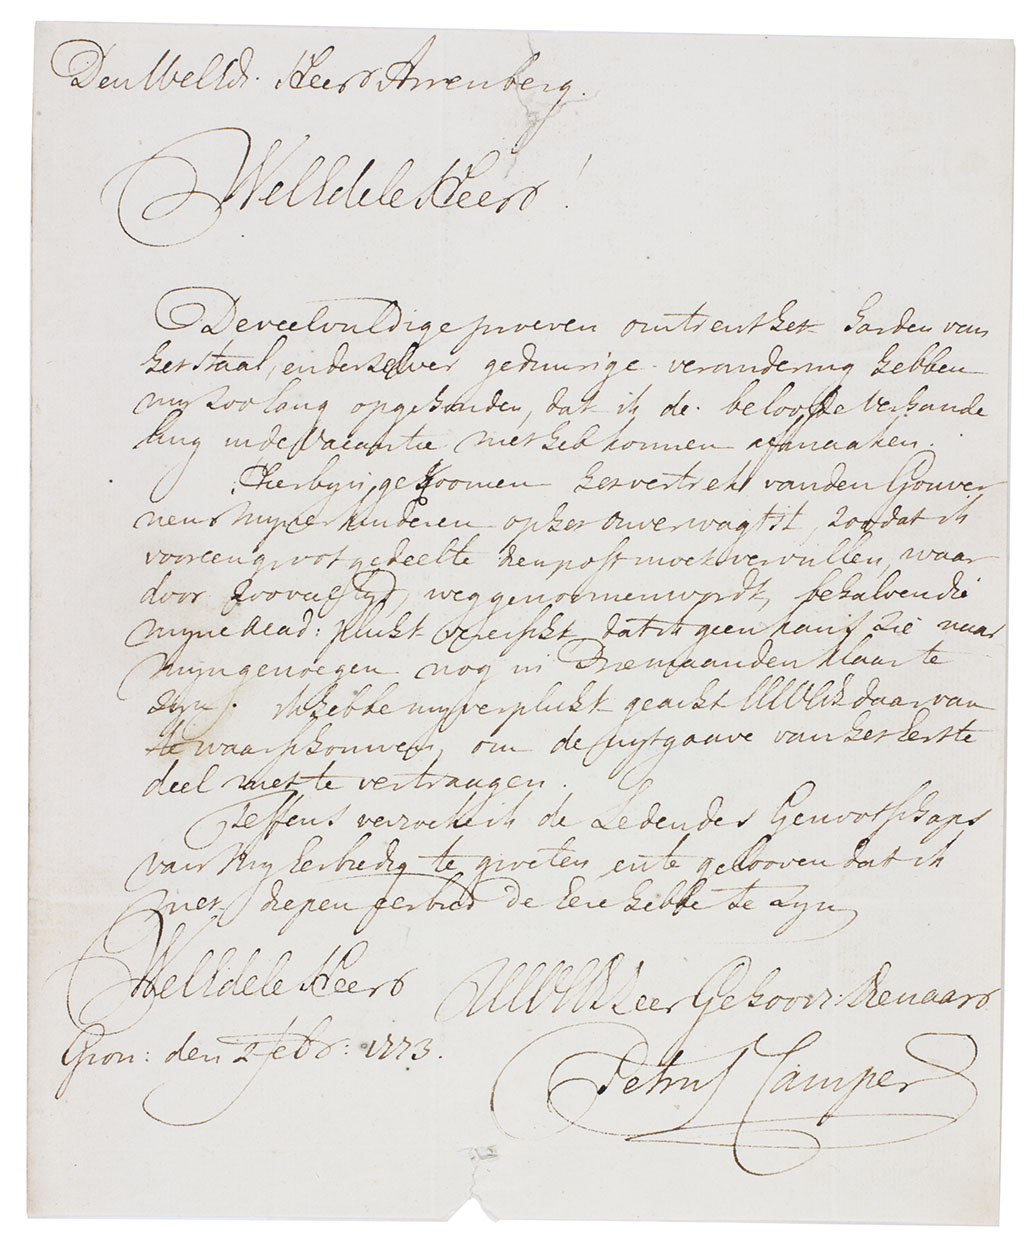 Den WelEd. Heere Arrenberg.
WelEdele Heere!
De veelvuldige proeven omtrent het harden van
het staal, en derzelver geduurige verandering hebben
my zoo lang opgehouden, dat ik de beloofde Verhande
ling in de Vacantie niet heb konnen afmaaken.
Hierby is gekoomen het vertrek van den Gouver
neur myner kinderen op het onverwagtst, zoo dat ik
voor een groot gedeelte dien post moet vervullen, waar
door zoo veel tyd weggenoomen wordt, behalven die
myne Acad: plicht vereischt dat ik geen kans zie naar
myn genoegen nog in Drie maanden klaar te
zyn. Ik hebbe my verplicht geacht UWEd daar van
te waarschouwen, om de uytgaave van het Eerste
deel niet te vertraagen.
Teffens verzoeke ik de Leden des Genootschaps
van my Eerbiedig te groeten, en te gelooven dat ik
met diepen eerbied de Eere hebbe te zyn
WelEdele Heere
UWEd Zeer Gehoorz: Dienaar
Gron: den 2 Febr: 1773.
Petrus Camper